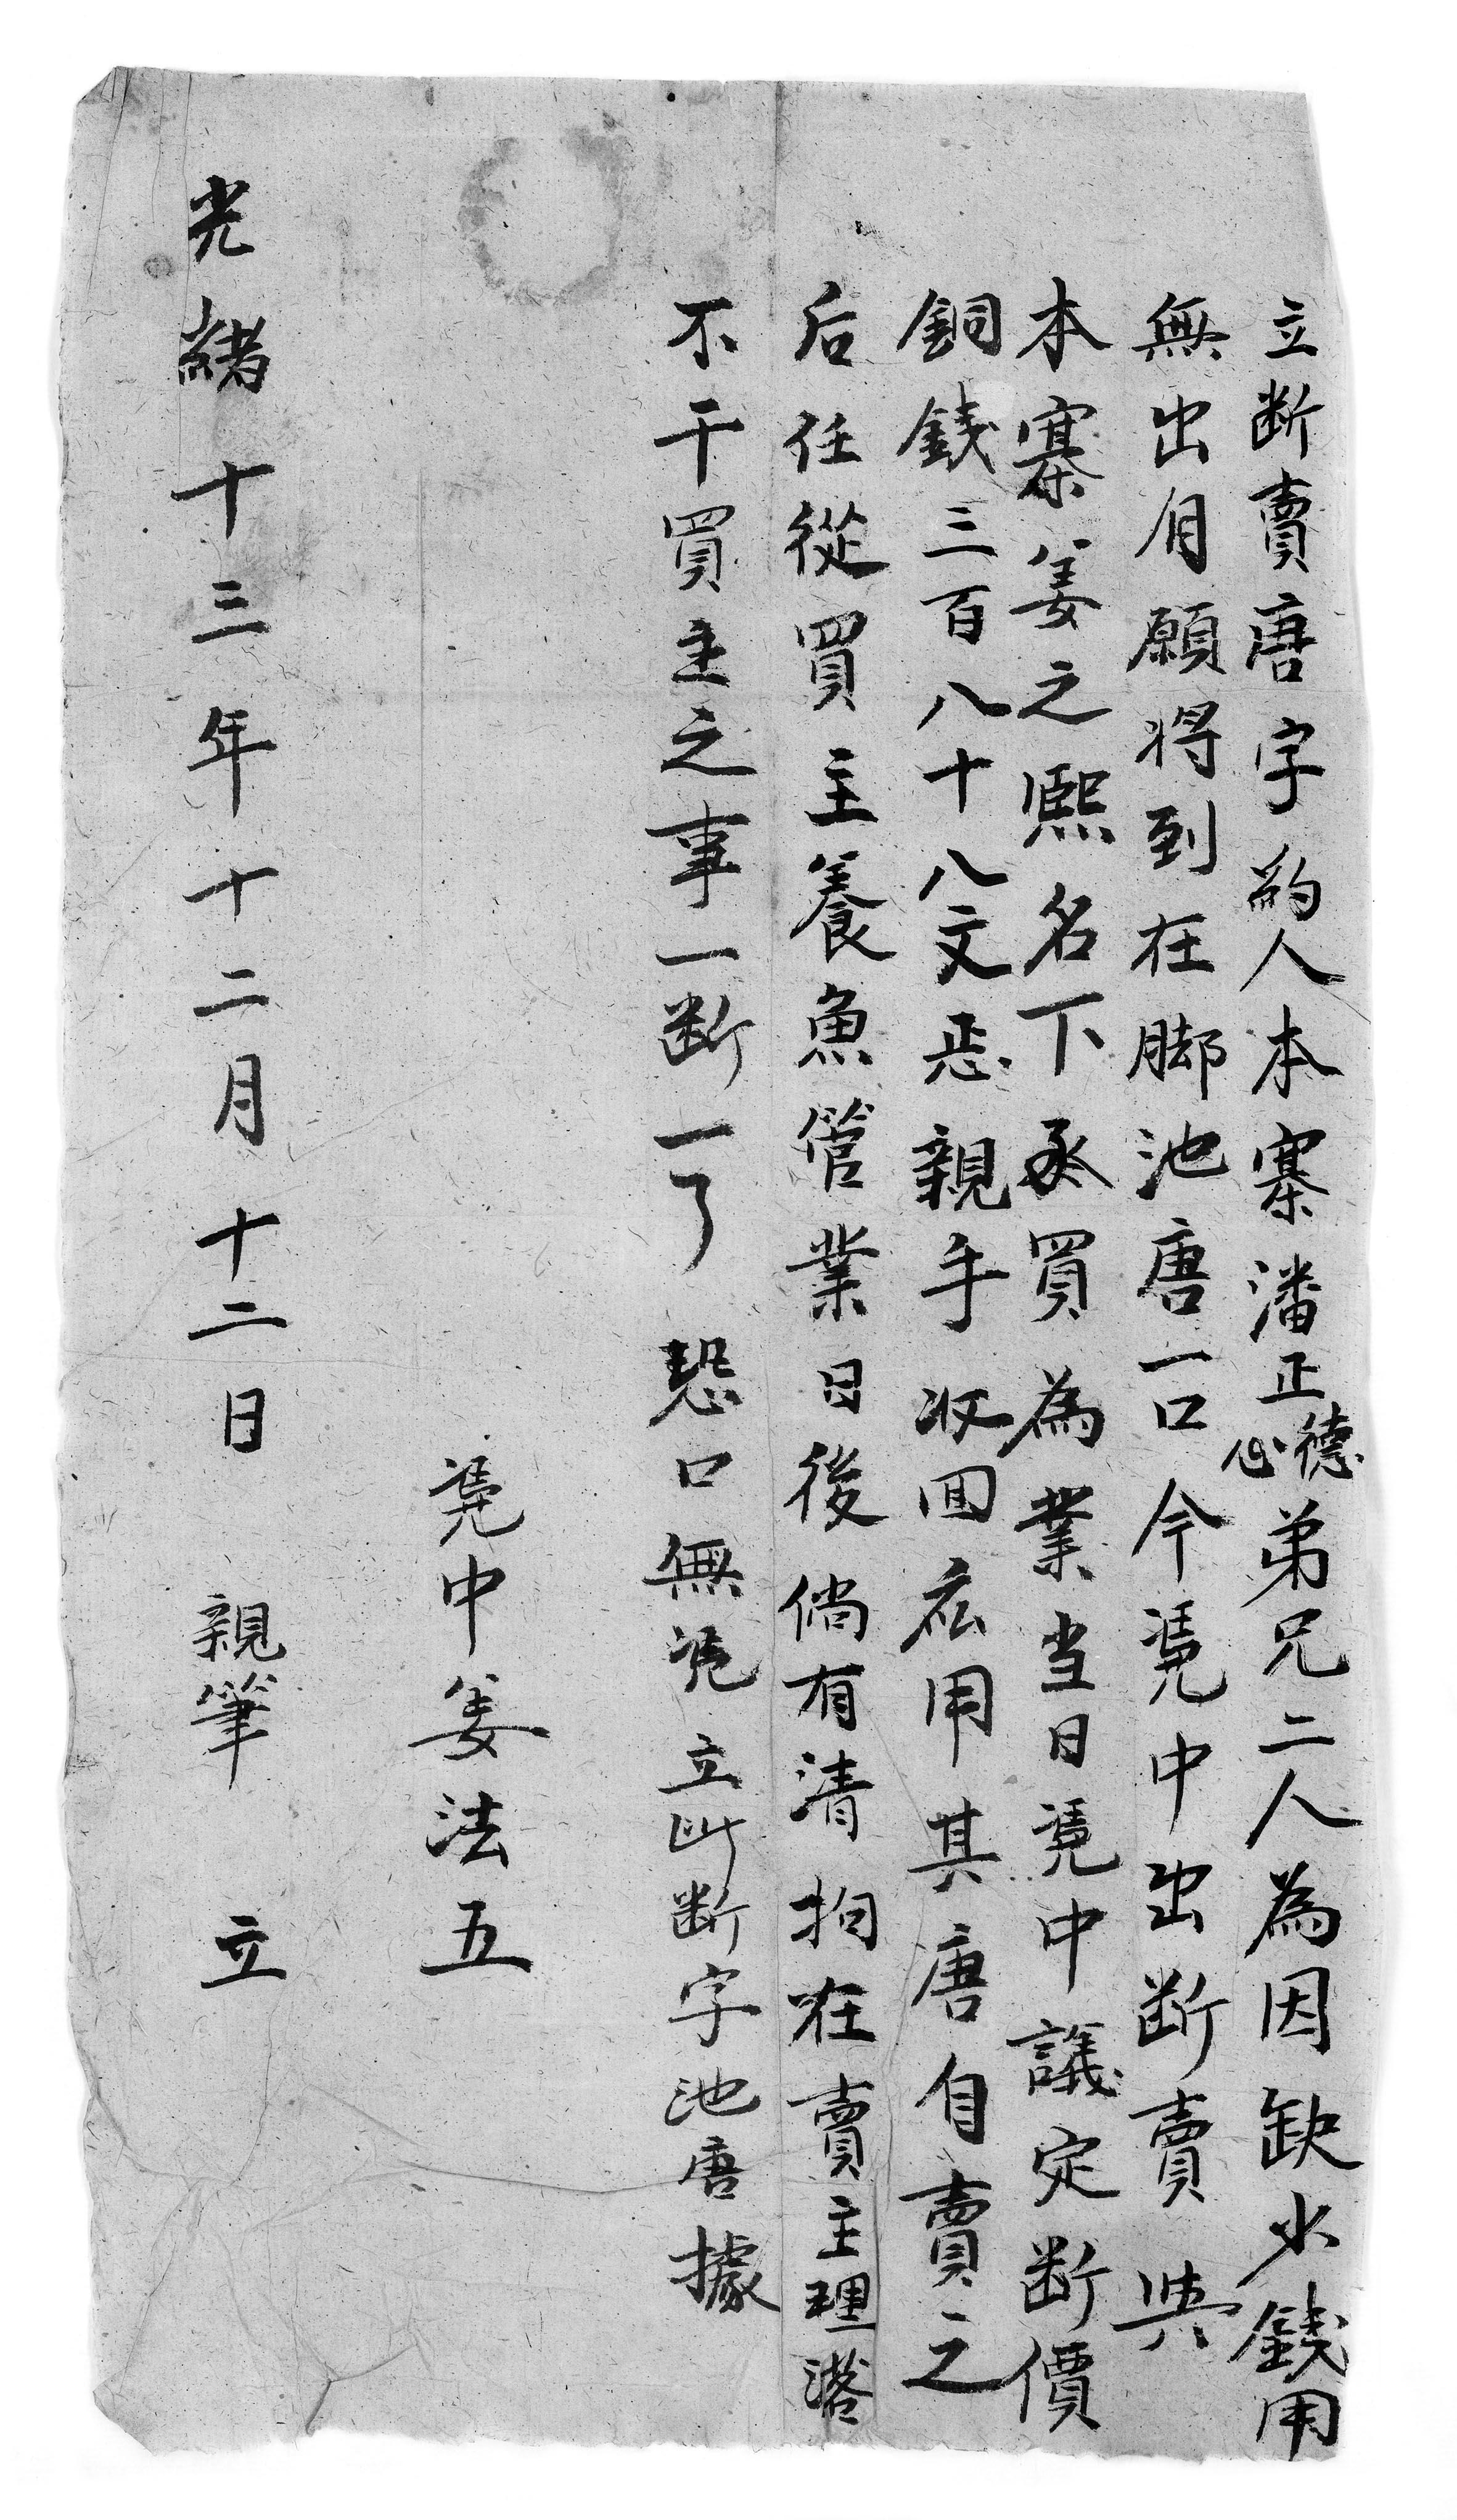 立断賣唐字約人本寨潘正德心弟兄二人為因缺少錢用
無出自願将到在脚池唐一口今凴中出断賣與
本寨姜之熙名下承買為業当日凴中議定断價
銅錢三百八十八文恶親手收回應用其唐自賣之
后任從買主養魚管業日後倘有清拘在賣主理落
不干買主之事一断一了恐口無凴立此断字池唐據
凴中姜法五
光緒十三年十二月十二日親筆立